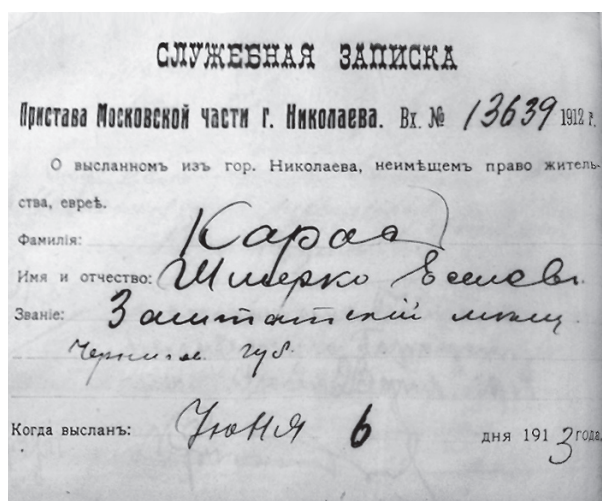 СЛУЖЕБНАЯ ЗАПИСКА
Пристава Московской части г. Николаева. Вх. № 13639 1912 г.
О высланном изъ гор. Николаева, неимѣщемъ право житель-
ства, евреѣ.
Фамилія:
Имя и отчество: Шмерко
Званіе: Заштатскій мѣщ
губ.
Когда высланъ: Июня 6 дня 1913 года.